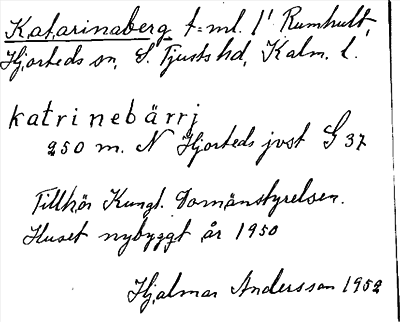 Katarinaberg t=ml. l' Rumhult,
Hjorteds sn, S. Tjusts hd, Kalm. l.
katrinebärrj
250 m. N Hjorteds jvst G 37
Tillhör Kungl. Domänstyrelsen.
Huset nybyggt år 1950
Hjalmar Andersson 1952